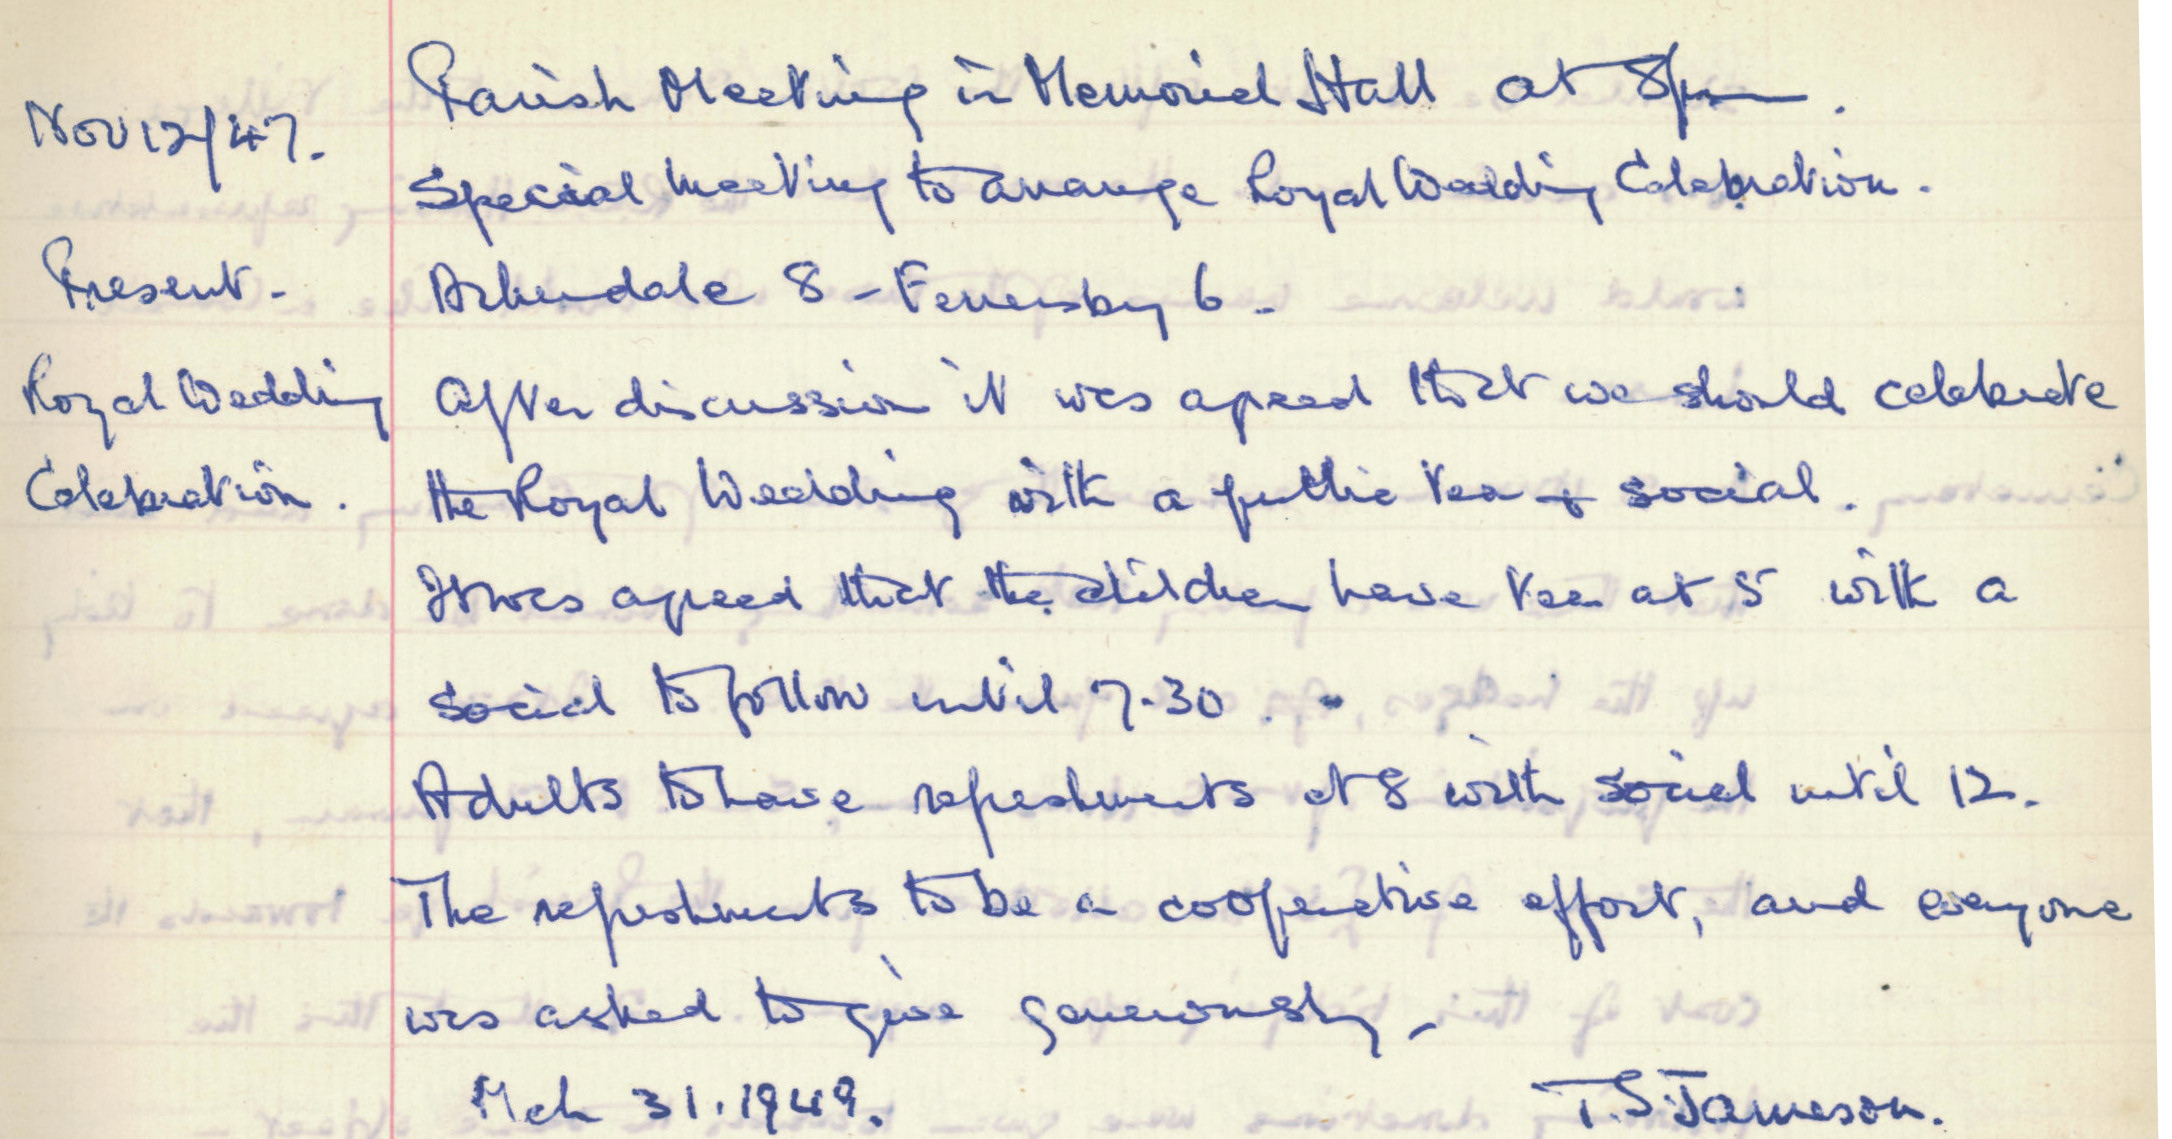 Nov 12/47.
Parish Meeting in Memorial Hall at 8pm.
Special Meeting to arrange Royal Wedding Celebration.
Present - Arkendale 8 - Ferrensby 6 -
Royal Wedding After discussion it was agreed that we should celebrate
Celebration. the Royal Wedding with a public tea & social.
It was agreed that the children have tea at 5 with a
social to follow until 7.30.
Adults to have refreshments at 8 with social until 12.
The refreshments to be a cooperative effort, and everyone
was asked to give generously -
Mch 31. 1949. T. S. Jameson.